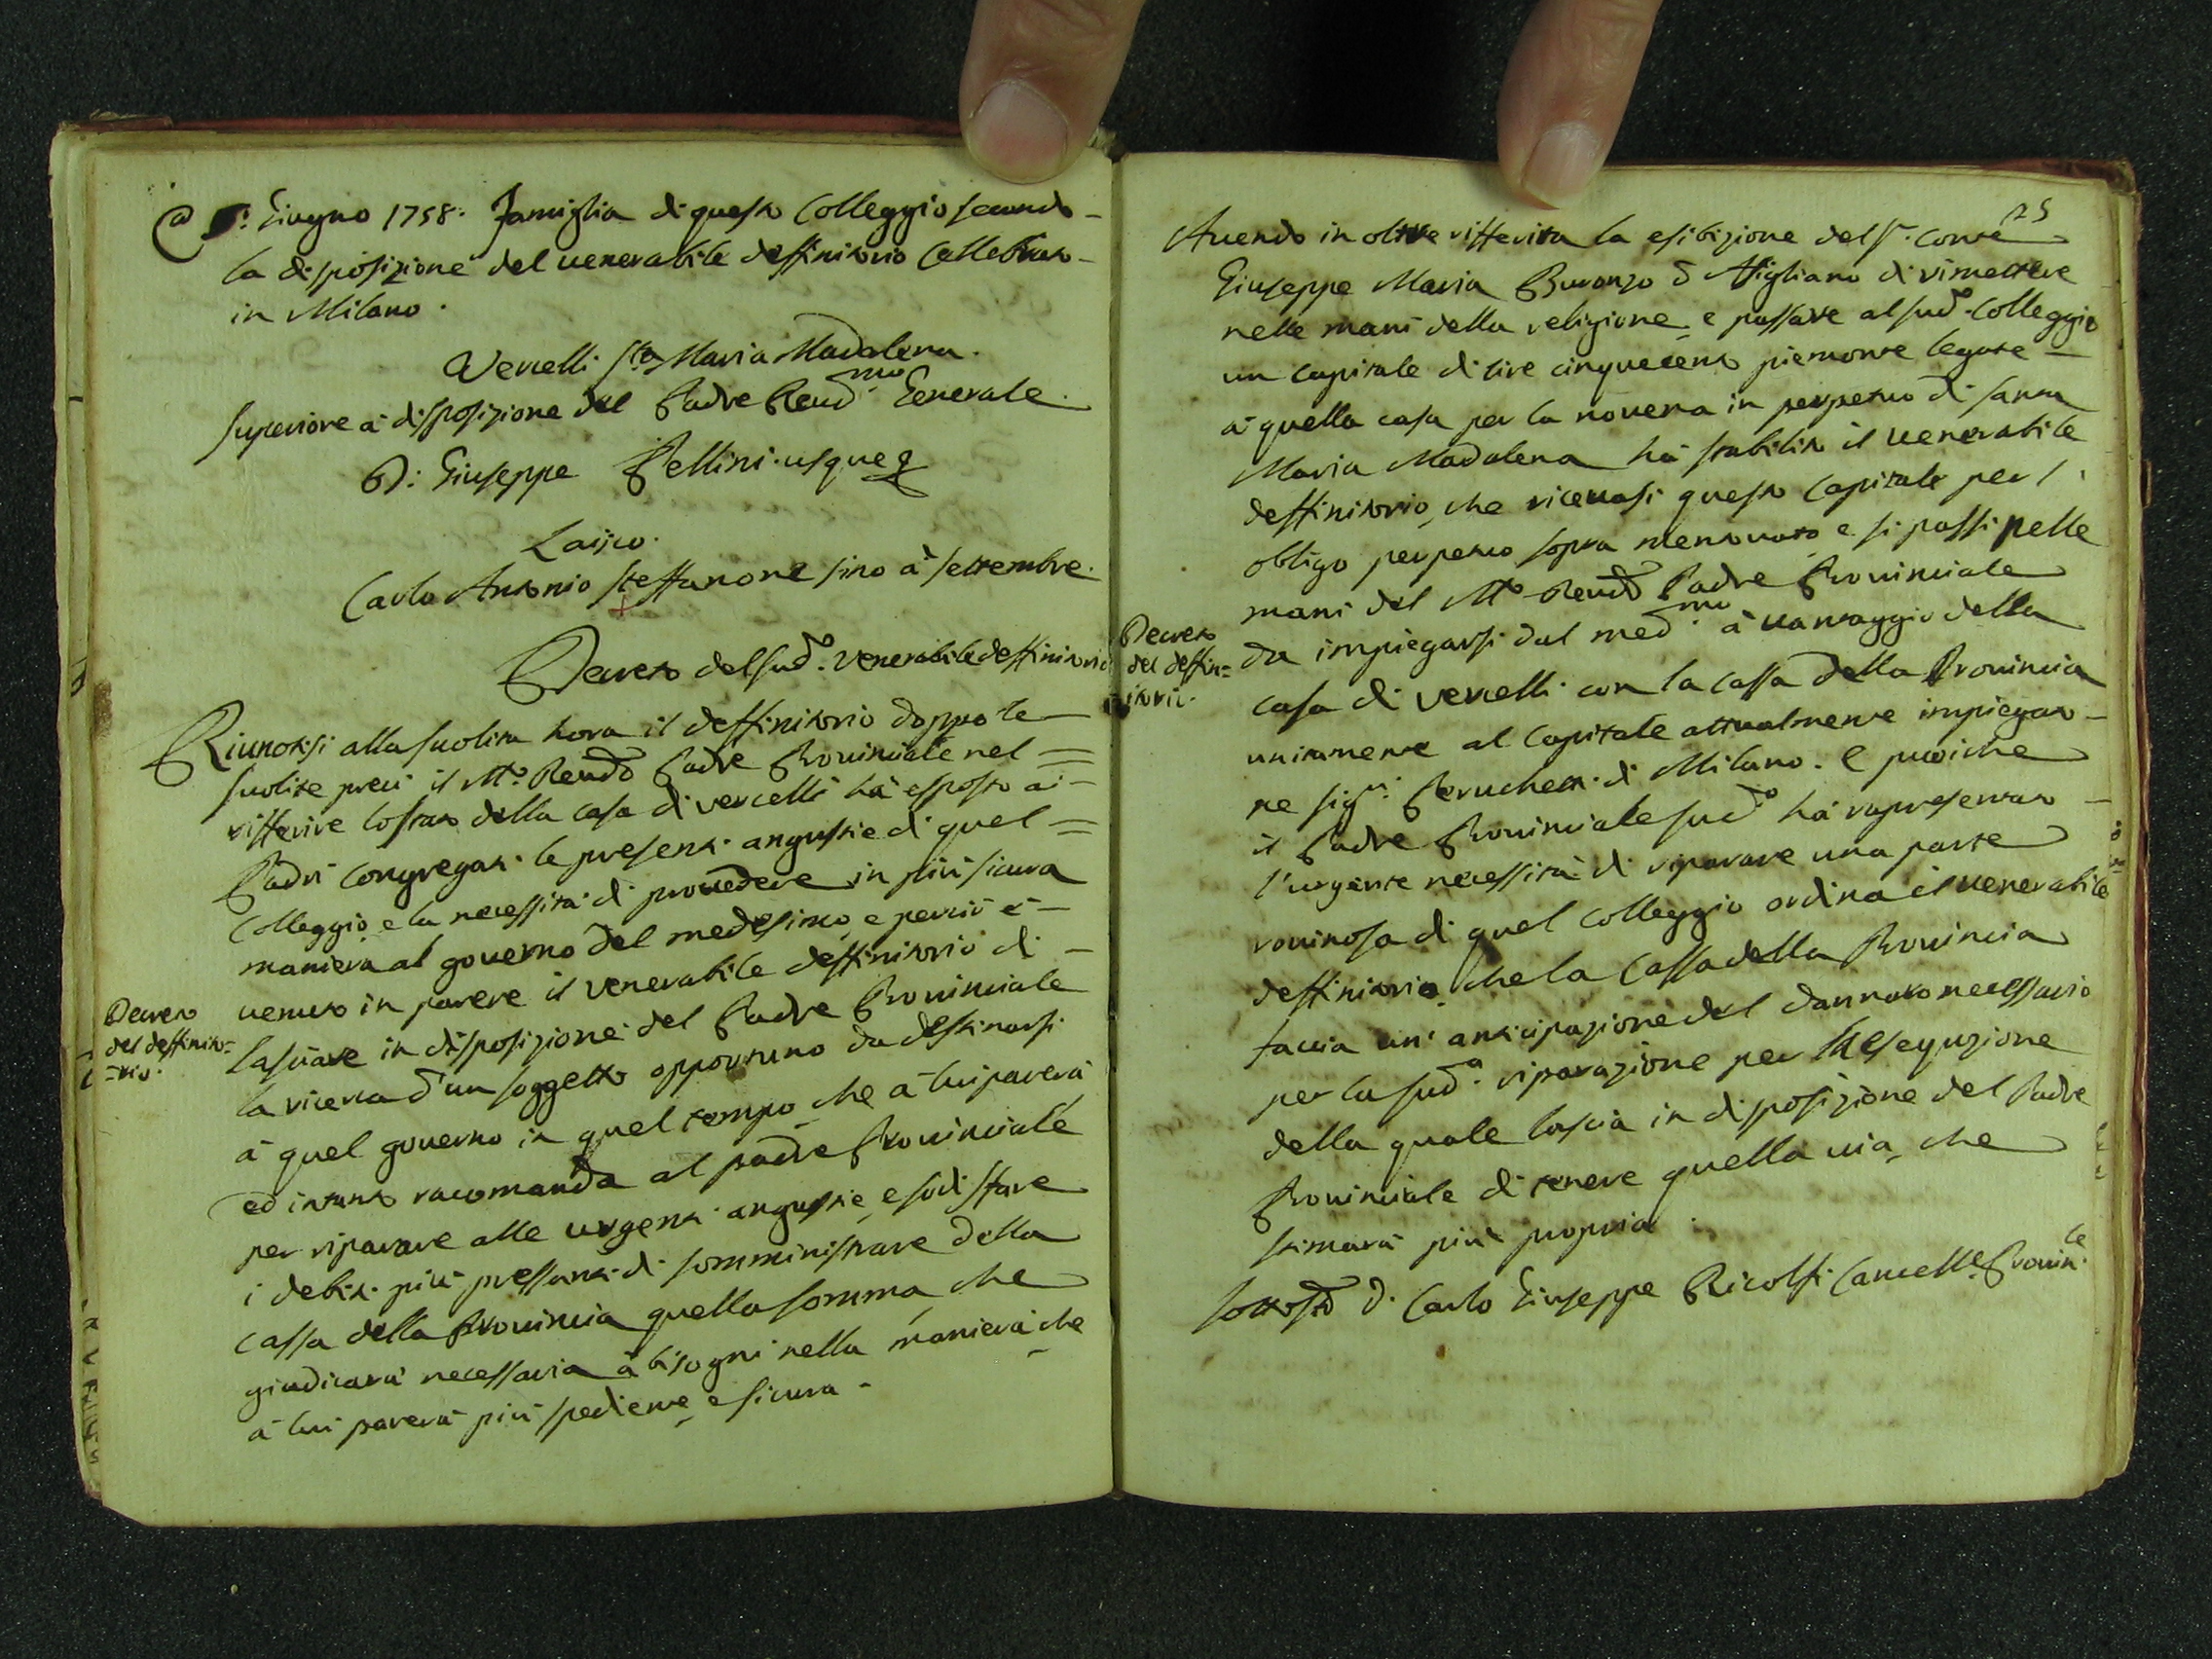 @ Giugno 1758. Famiglia di questo Colleggio secondo
la disposizione del uenerabile deffinitorio Cellebrato
in Milano.
Vercelli Sta Maria Madalena.
Superiore à disposizione del Padre Reud.mo Generale.
D: Giuseppe Pellini usque q
Laijco.
Carlo Antonio Steffanone sino à settembre.
Decreto del sud.o Venerabile deffinitorio
Riunotisi alla suolita hora il deffinitorio doppo le
suolite preci il M.o Reud.o Padre Prouinciale nel
rifferire lo stato della casa di vercelli hà esposto ai
Padri congregati le presenti angustie di quel
Colleggio, e la necessità di prouedere in più sicura
maniera al gouerno del medesimo, e perciò è
uenuto in parere il Venerabile deffinitorio di
Decreto
del deffinito=
=rio.
lasciare in disposizione del Padre Prouinciale
la ricerca d'un soggetto opportuno da destinarsi
à quel gouerno in quel tempo, che à lui parerà
ed intanto racomanda al padre Prouinciale
per riparare alle urgenti angustie, e sodisfare
i debiti più pressanti di somministrare della
cassa della Prouincia quella somma, che
giudicarà necessaria à bisogni nella maniera che
à lui parerà più spediente, e sicura.
25
Auendo in oltre rifferita la esibizione del Sr. Conte
Giuseppe Maria Buronzo d' Asigliano di rimettere
nelle mani della religione, e passare al sud.o Colleggio
un capitale di lire cinquecento piemonte legate
à quella casa per la nouena in perpetuo di santa
Maria Madalena hà stabilito il uenerabile
deffinitorio, che riceuasi questo capitale per l'
obligo perpetuo sopra mentouato, e si passi nelle
mani del M.o Reud.o Padre Prouinciale
Decreto
del deffin=
itorio.
da impiegarsi dal med.mo à uantaggio della
casa di vercelli con la cassa della Prouincia
unitamente al capitale attualmente impiegato
ne sig.ri Peruchetti di Milano. E puoiche
il Padre Prouinciale sud.o hà rapresentato
l'urgente necessità di riparare una parte
rouinosa di quel Colleggio ordina il uenerabile
deffinitorio, che la Cassa della Prouincia
faccia un' anticipazione del dannaro necessario
per la sud.a riparazione per l'esequzione
della quale lascia in disposizione del Padre
Prouinciale di tenere quella uia, che
stimarà più propria.
sottost.o D. Carlo Giuseppe Ricolfi Cancelle. Prouin.le